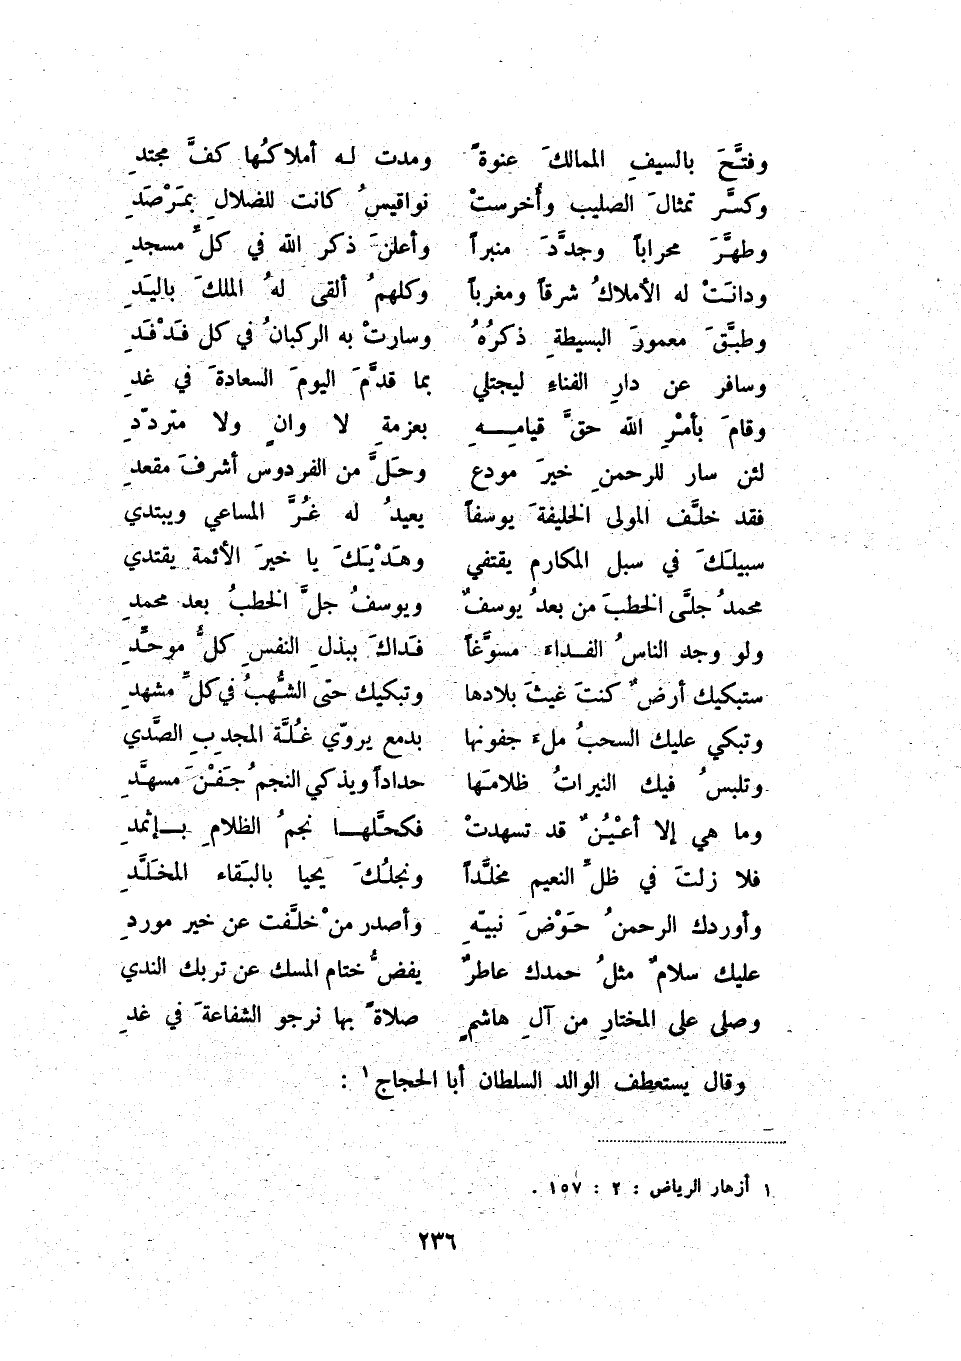 وفتَّحَ بالسيفِ الممالكَ عنوةً ومدت له أملاكُها كفَّ مجتدِ
وكسَّر تمثالَ الصليب وأُخرستْ نواقيسُ كانت للضلالِ بمَرْصَدِ
وطهَّرَ محراباً وجدَّدَ منبراً وأعلنَ ذكر الله في كلِّ مسجدِ
ودانَتْ له الأملاكُ شرقاً ومغرباً وكلهمُ ألقى لهُ الملكَ باليَدِ
وطبَّقَ معمورَ البسيطةِ ذكرُهُ وسارتْ به الركبانُ في كل فَدْفَدِ
وسافر عن دارِ الفناءِ ليجتلي بما قدَّمَ اليومَ السعادةَ في غدِ
وقامَ بأمْرِ الله حقَّ قيامِهِ بعزمةِ لا وانٍ ولا متردّدِ
لئن سار للرحمنِ خيرَ مودع وحَلَّ من الفردوس أشرفَ مقعدِ
فقد خلَّف المولى الخليفةَ يوسفاً يعيدُ له غُرَّ المساعي ويبتدي
سبيلَكَ في سبل المكارم يقتفي وهَدْيَكَ يا خيرَ الأئمة يقتدي
محمدُ جلَّى الخطبَ من بعدُ يوسفٌ ويوسفُ جلَّ الخطبُ بعد محمدِ
ولو وجد الناسُ الفداءَ مسوَّغاً فَداكَ ببذلِ النفسِ كلُّ موحِّدِ
ستبكيك أرضٌ كنتَ غيثَ بلادها وتبكيك حتى الشُّهبُ في كلِّ مشهدِ
وتبكي عليك السحبُ ملءَ جفونها بدمع يروّي غُلَّة المجدِبِ الصَّدي
وتلبسُ فيك النيراتُ ظلامَها حداداً ويذكي النجمُ جَفْنَ مسهَّدِ
وما هي إلا أعْيُنٌ قد تسهدتْ فكحَّلها نجمُ الظلامِ بإثمدِ
فلا زلتَ في ظلِّ النعيم مخلَّداً ونجلُكَ يحيا بالبَقاء المخلَّدِ
وأوردك الرحمنُ حَوْضَ نبيّهِ وأصدر منْ خلَّفت عن خير موردِ
عليك سلامٌ مثلُ حمدك عاطرٌ يفضُّ ختام المسك عن تربك الندي
وصلى على المختارِ من آلِ هاشمٍ صلاةً بها نرجو الشفاعةَ في غدِ
وقال يستعطف الوالد السلطان أبا الحجاج١ :
١ أزهار الرياض : ٢ : ١٥٧ .
٢٣٦